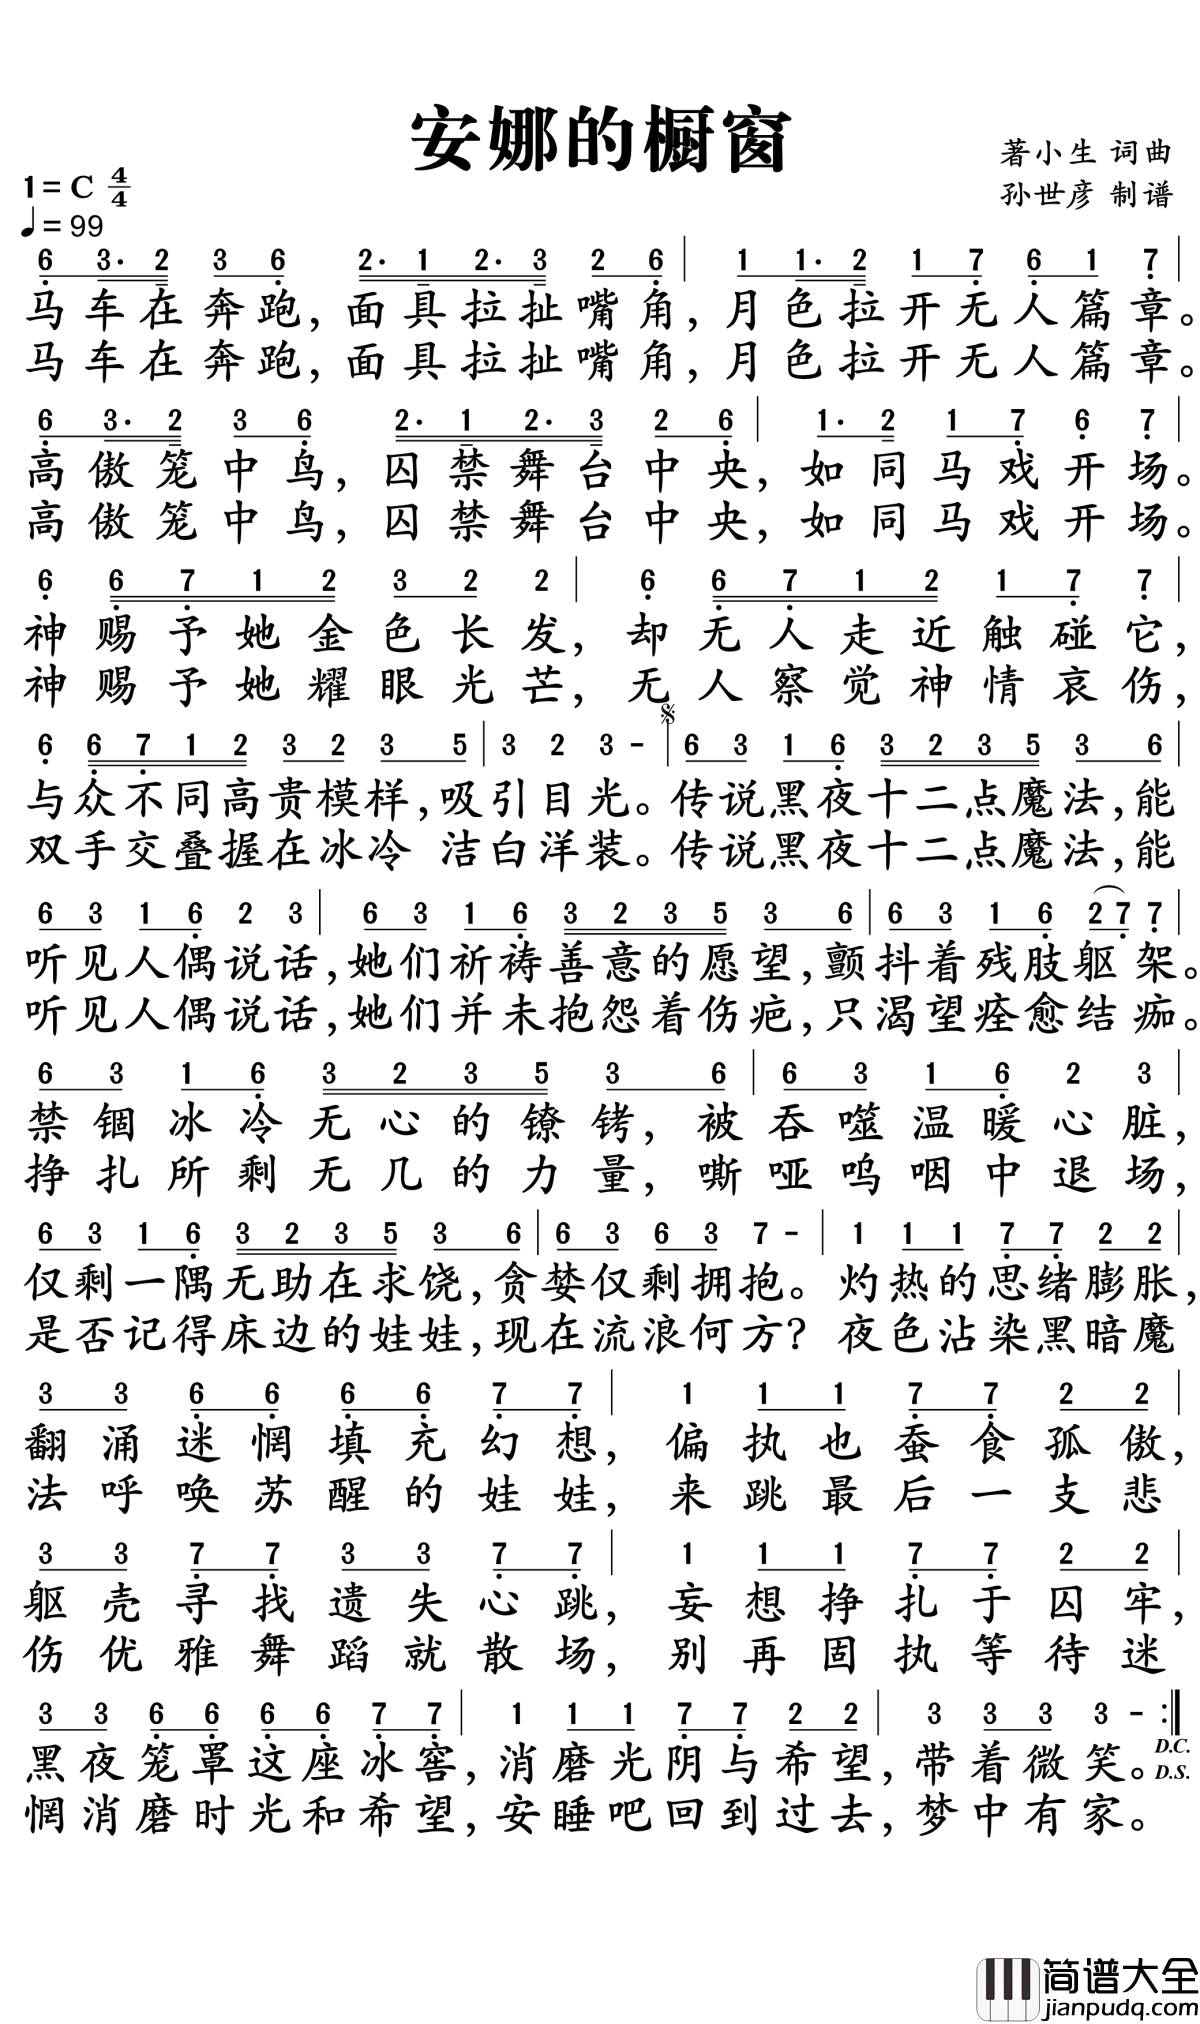 安娜的橱窗
著小生 词曲
1=C 4/4
孙世彦 制谱
♩=99
6 3· 2 3 6 2· 1 2· 3 2 6 | 1 1· 2 1 7 6 1 7 |
马车在奔跑,面具拉扯嘴角,月色拉开无人篇章。
马车在奔跑,面具拉扯嘴角,月色拉开无人篇章。
6 3· 2 3 6 2· 1 2· 3 2 6 | 1· 2 1 7 6 7 |
高傲笼中鸟,囚禁舞台中央,如同马戏开场。
高傲笼中鸟,囚禁舞台中央,如同马戏开场。
6 6 7 1 2 3 2 2 | 6 6 7 1 2 1 7 7 |
神赐予她金色长发,却无人走近触碰它,
神赐予她耀眼光芒,无人察觉神情哀伤,
6 6 7 1 2 3 2 3 5 | 3 2 3 - | 6 3 1 6 3 2 3 5 3 6
与众不同高贵模样,吸引目光。传说黑夜十二点魔法,能
双手交叠握在冰冷 洁白洋装。传说黑夜十二点魔法,能
6 3 1 6 2 3 | 6 3 1 6 3 2 3 5 3 6 | 6 3 1 6 2 7 7 |
听见人偶说话,她们祈祷善意的愿望,颤抖着残肢躯架。
听见人偶说话,她们并未抱怨着伤疤,只渴望痊愈结痂。
6 3 1 6 3 2 3 5 3 6 | 6 3 1 6 2 3 |
禁锢冰冷无心的镣铐,被吞噬温暖心脏,
挣扎所剩无几的力量,嘶哑呜咽中退场,
6 3 1 6 3 2 3 5 3 6 | 6 3 6 3 7 - | 1 1 1 7 7 2 2 |
仅剩一隅无助在求饶,贪婪仅剩拥抱。灼热的思绪膨胀,
是否记得床边的娃娃,现在流浪何方? 夜色沾染黑暗魔
3 3 6 6 6 6 7 7 | 1 1 1 7 7 2 2 |
翻涌迷惘填充幻想,偏执也蚕食孤傲,
法呼唤苏醒的娃娃,来跳最后一支悲
3 3 7 7 3 3 7 7 | 1 1 1 7 7 2 2 |
躯壳寻找遗失心跳,妄想挣扎于囚牢,
伤优雅舞蹈就散场,别再固执等待迷
3 3 6 6 6 6 7 7 | 1 1 1 7 7 2 2 | 3 3 3 3 - :||
黑夜笼罩这座冰窖,消磨光阴与希望,带着微笑。D.C.
D.S.
惘消磨时光和希望,安睡吧回到过去,梦中有家。
简谱大全
jianpudq.com